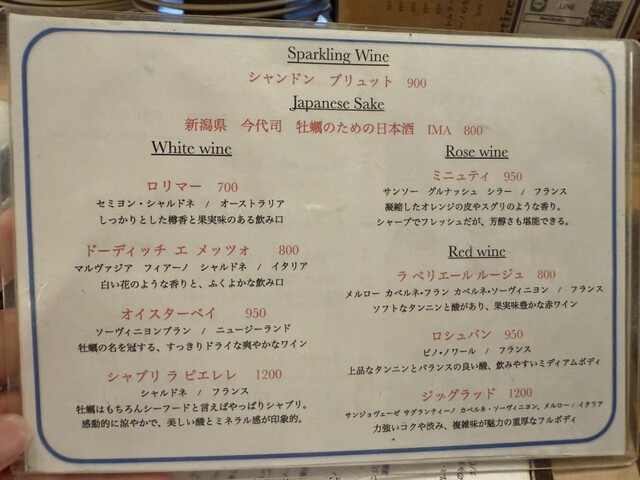 Sparkling Wine
シャンドン ブリュット 900
Japanese Sake
新潟県 今代司 牡蠣のための日本酒 IMA 800
White wine
ロリマー 700
セミヨン・シャルドネ / オーストラリア
しっかりとした樽香と果実味のある飲み口
ドーディッチ エ メッツォ 800
マルヴァジア フィアーノ シャルドネ / イタリア
白い花のような香りと、ふくよかな飲み口
オイスターベイ 950
ソーヴィニヨンブラン / ニュージーランド
牡蠣の名を冠する、すっきりドライな爽やかなワイン
シャブリ ラ ピエレレ 1200
シャルドネ / フランス
牡蠣はもちろんシーフードと言えばやっぱりシャブリ。
感動的に涼やかで、美しい酸とミネラル感が印象的。
Rose wine
ミニュティ 950
サンソー グルナッシュ シラー / フランス
凝縮したオレンジの皮やスグリのような香り。
シャープでフレッシュだが、芳醇さも堪能できる。
Red wine
ラ ペリエール ルージュ 800
メルロー カベルネ・フラン カベルネ・ソーヴィニヨン / フランス
ソフトなタンニンと酸があり、果実味豊かな赤ワイン
ロシュバン 950
ピノ・ノワール / フランス
上品なタンニンとバランスの良い酸、飲みやすいミディアムボディ
ジッグラッド 1200
サンジョヴェーゼ サグランティーノ カベルネ・ソーヴィニヨン、メルロー / イタリア
力強いコクや渋み、複雑味が魅力の重厚なフルボディ